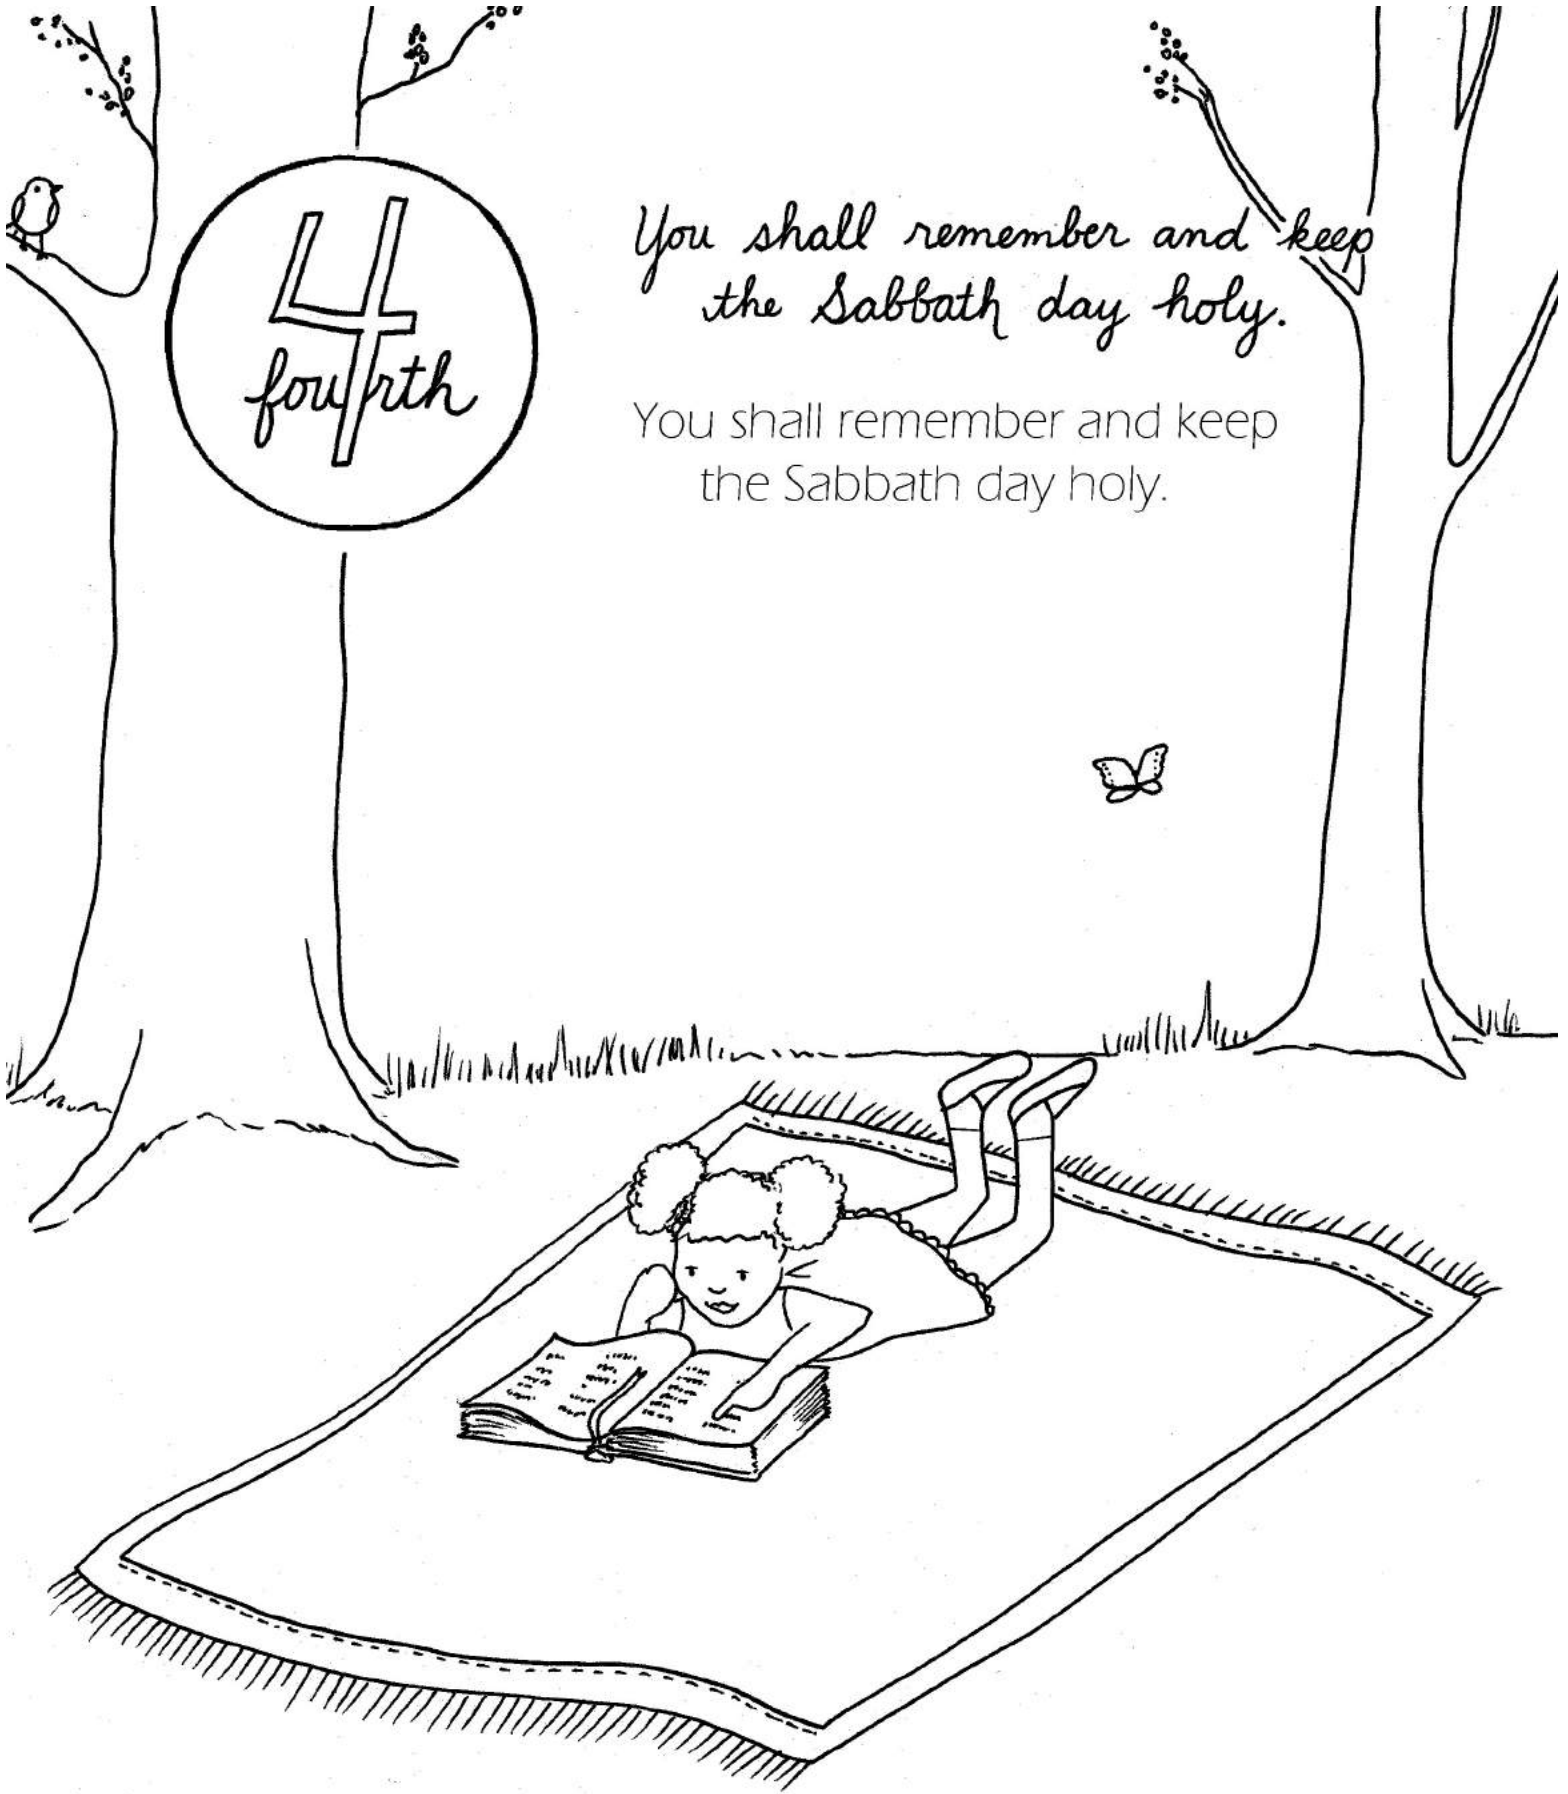 4
fourth
You shall remember and keep
the Sabbath day holy.
You shall remember and keep
the Sabbath day holy.